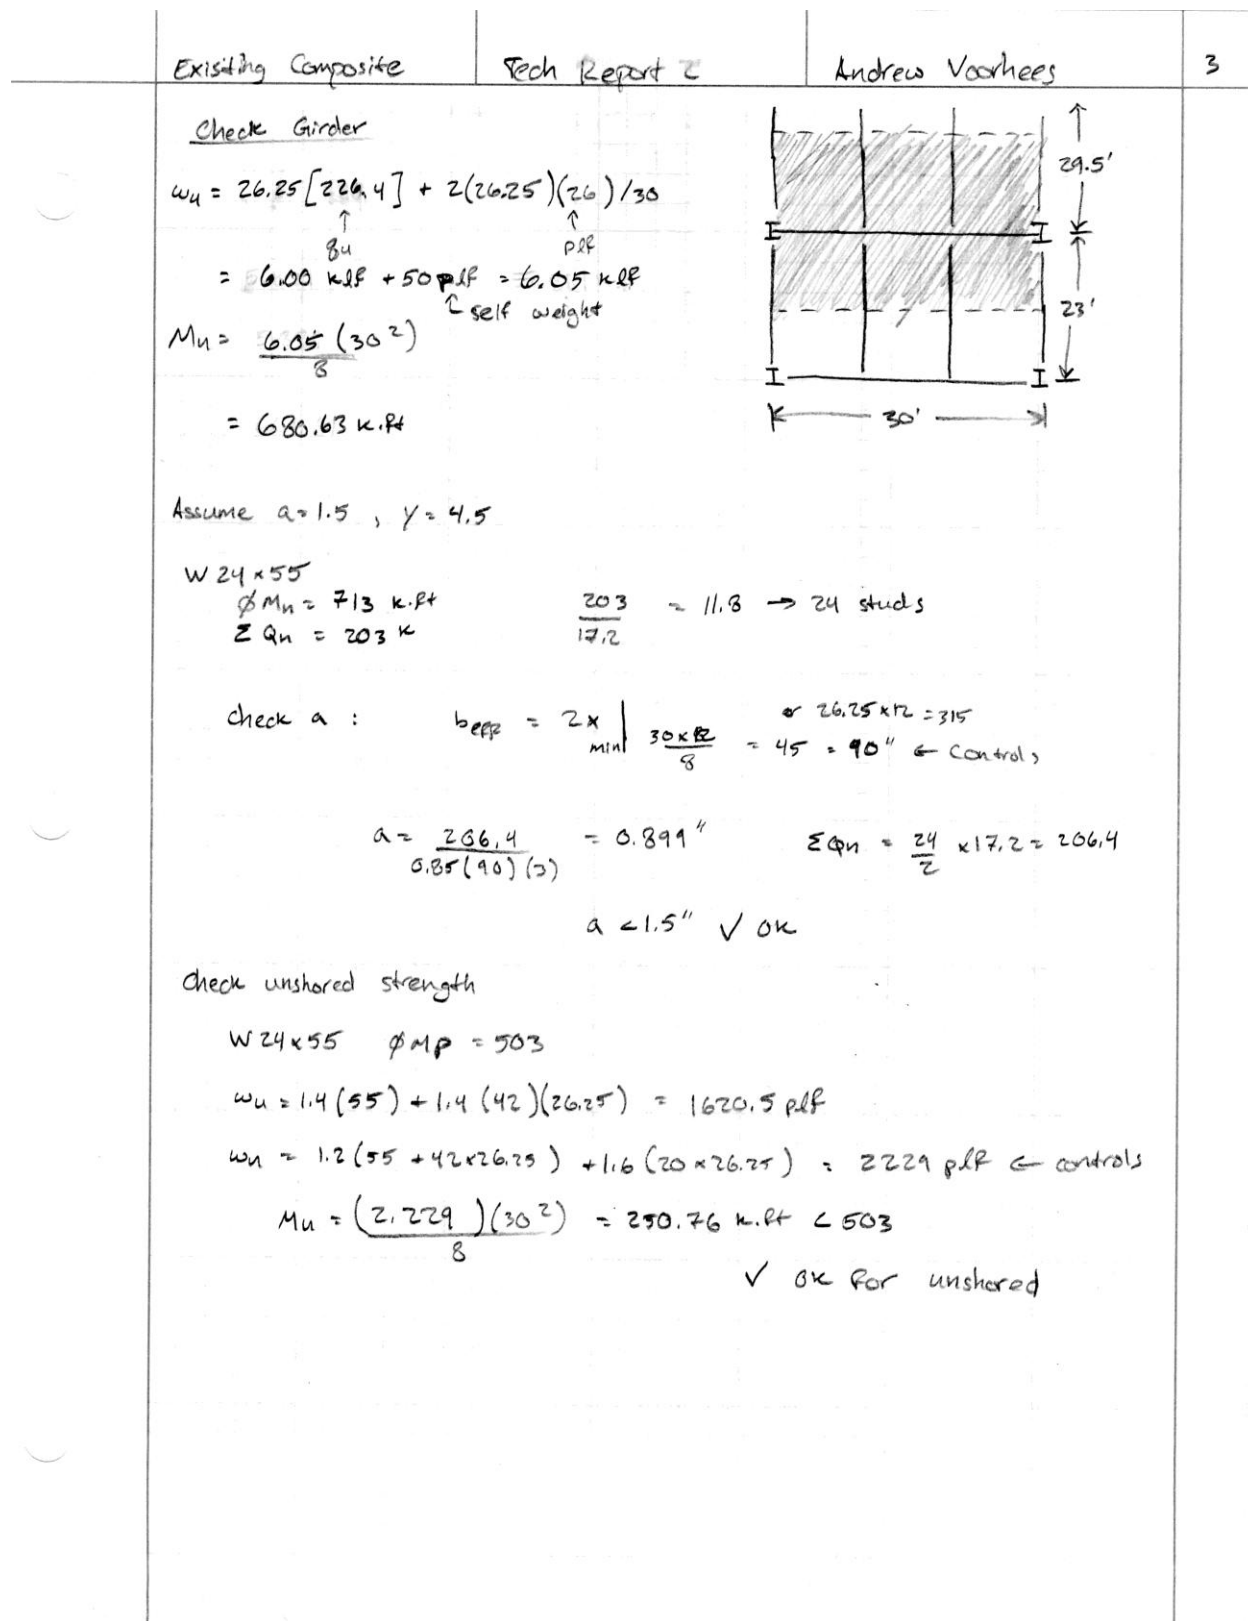 Exisiting Composite
Tech Report 2
Andrew Voorhees
3
Check Girder
wu = 26.25[226.4] + 2(26.25)(26)/30
↑ qu
↑ plf
= 6.00 klf + 50 plf = 6.05 klf
↑ self weight
Mu = 6.05 (30²) / 8
= 680.63 k.ft
29.5'
23'
30'
Assume a=1.5 , Y = 4.5
W 24×55
ϕMn = 713 k.ft
ΣQn = 203 k
203 / 17.2 = 11.8 → 24 studs
Check a :
beff = 2 × min | 30×12 / 8 = 45 = 90" ← Controls
or 26.25×12 = 315
a = 206.4 / 0.85(90)(3) = 0.899"
ΣQn = 24/2 ×17.2 = 206.4
a < 1.5" ✓ OK
Check unshored strength
W 24×55 ϕMp = 503
wu = 1.4(55) + 1.4(42)(26.25) = 1620.5 plf
wu = 1.2(55 + 42×26.25) + 1.6(20×26.25) = 2229 plf ← controls
Mu = (2.229)(30²) / 8 = 250.76 k.ft < 503
✓ OK for unshored